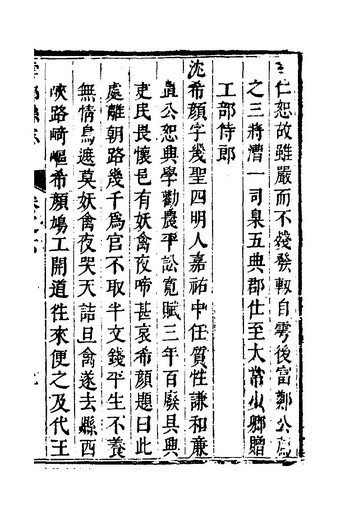 仁恕故雖嚴而不殘發軔自雩後富鄭公薦
之三將漕一司臬五典郡仕至大常少卿贈
工部侍郎
沈希顏字幾聖四明人嘉祐中任賞性謙和亷
貞公恕典學勸農平訟寬賦三年百廢具興
吏民畏懷邑有妖禽夜啼甚哀希顏題曰此
處離朝路幾千爲官不取半文錢平生不養
無情鳥遮莫妖禽夜哭天詰旦禽遂去縣西
峽路崎嶇希顏鳩工開道徃來便之及代王